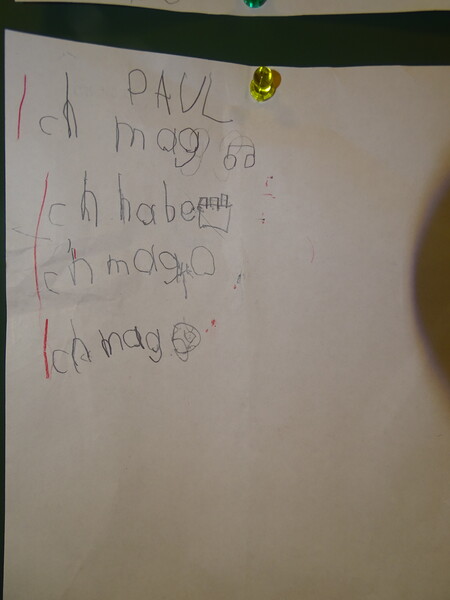 PAUL
Ich mag
Ich habe
Ich mag
Ich mag